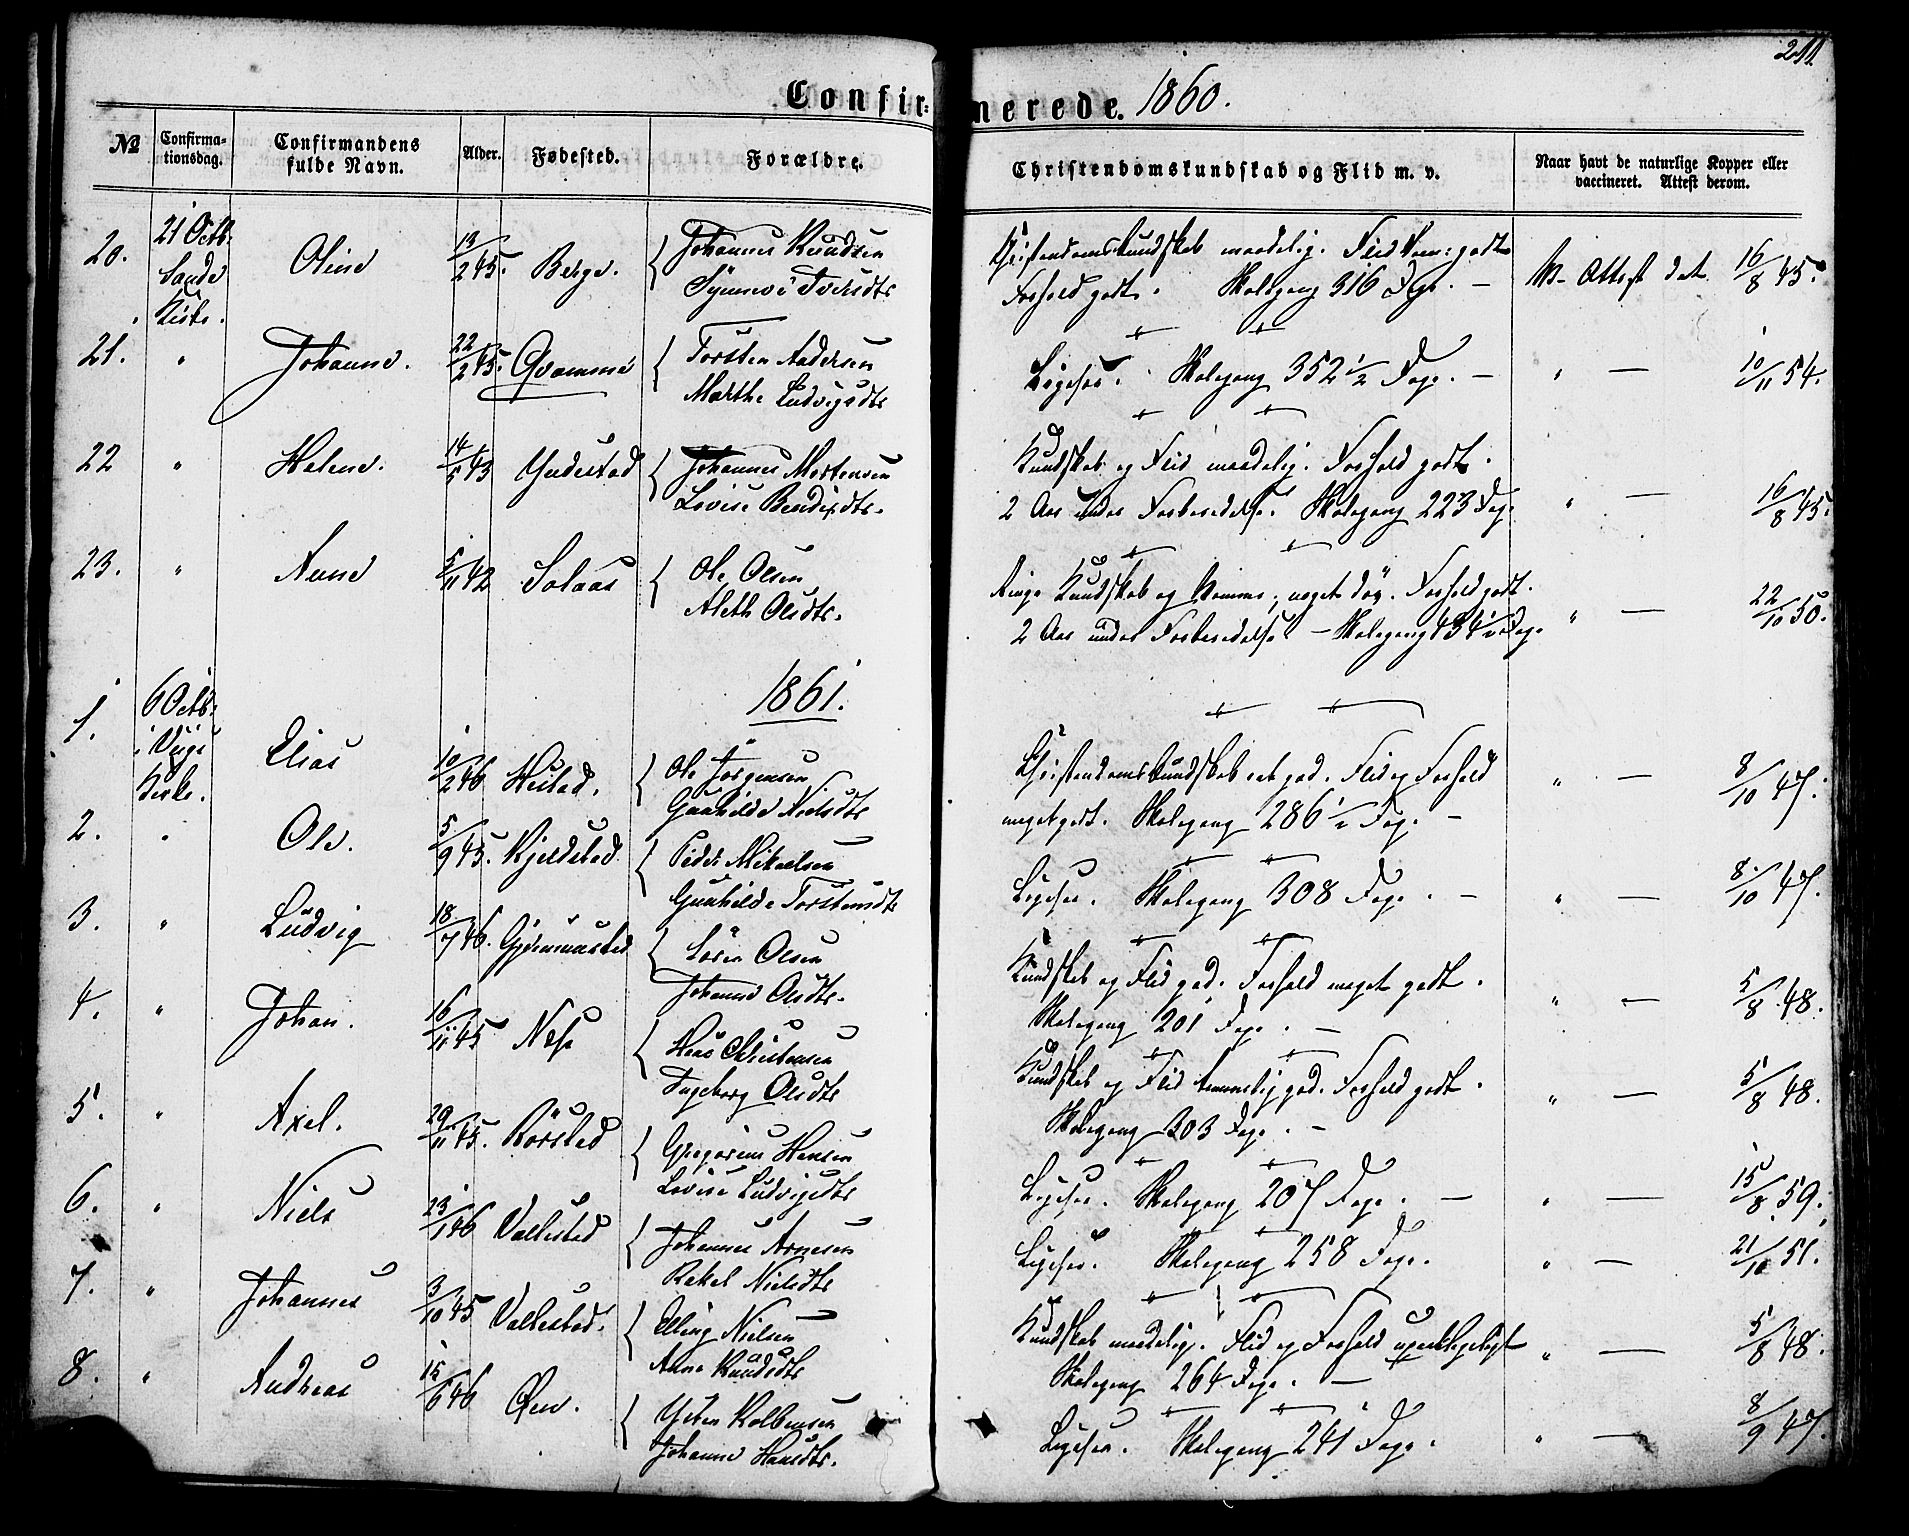 211
Confirmerede. 1860.
№ Confirmationsdag. Confirmandens fulde Navn. Alder. Fødested. Forældre. Christendomskundskab og Flid m. v. Naar havt de naturlige Kopper eller vaccineret. Attest derom.
20. 21 Octb: Sande Kirke. Oline 13/2 45. Berge. Johannes Knudsen
Forhold godt. Skolegang 316 Dage. — V. Attest dat. 16/8 45.
21. " Johanne. 22/2 45. Qvamme Torsten Andersen
Marthe Ludvigsdtr
Ligesaa. Skolegang 352 1/2 Dage. — " — 10/11 54.
22 " Helene. 14/5 43 Yndestad Johannes Mortensen
Lovise Bendixdtr.
Kundskab og Flid maadelig. Forhold godt.
2 Aar under Forberedelse. Skolegang 223 Dage " — 16/8 45.
23. " Anne 5/11 42 Solaas Ole Olsen
Aleth Olsdtr.
Ringe Kundskab og Nemme, noget døv. Forhold godt.
2 Aar under Forberedelse — Skolegang 434 1/2 Dage " — 22/10 50.
1861.
1. 6 Octb: i Kirke. Elias 10/2 46 Hestad. Ole Jörgensen
Gunhilde Nielsdtr
Christendomskundskab ret god. Flid og Forhold
meget godt. Skolegang 286 1/2 Dage — " — 8/10 47.
2. " Ole. 5/9 45. Kjeldstad Peder Mikaelsen
Gunhilde Torstensdtr
Ligesaa. Skolegang 308 Dage. — " — 8/10 47.
3. " Ludvig 18/7 46. Sören Olsen
Johanne Olsdtr.
Kundskab og Flid god. Forhold meget godt.
Skolegang 201 Dage. — " — 5/8 48.
4. " Johan. 16/11 45 Næss Hans Christensen
Ingeborg Olsdtr
Kundskab og Flid temmelig god. Forhold godt.
Skolegang 303 Dage. — " — 5/8 48.
5. " Axel. 29/11 45. Rörstad Gregorius Hansen
Lovise Ludvigsdtr
Ligesaa. Skolegang 207 Dage. — " — 15/8 59.
6. " Niels 23/1 46 Vallestad Johannes Arnesen
Rakel Nielsdtr
Ligesaa. Skolegang 258 Dage. " — 21/10 51.
7. " Johannes 3/10 45 Vallestad. Elling Nielsen
Anne Knudsdtr
Kundskab maadelig. Flid og Forhold upaaklageligt
Skolegang 264 Dage. — " — 5/8 48.
8. " Andreas 15/6 46 Øen. Kolbensen
Johanne Hansdtr.
Ligesaa. Skolegang 241 Dage. " — 8/9 47.